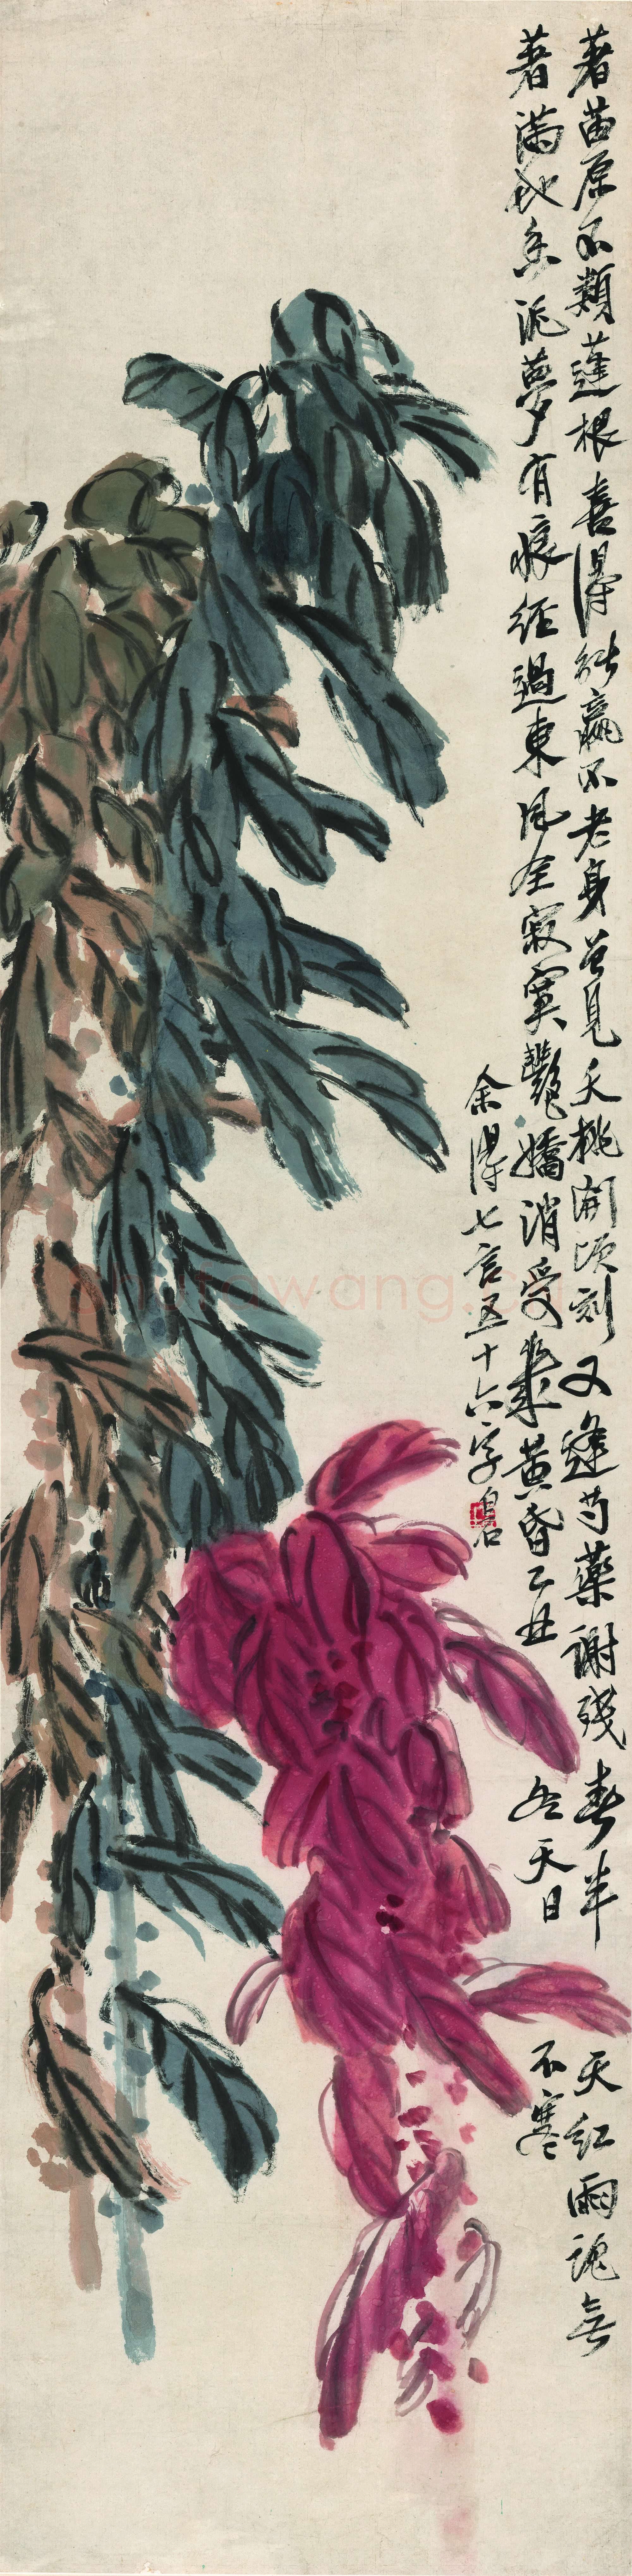 著苗原不類蓬根喜得能贏不老身曾見夭桃開頃刻又逢芍藥謝殘春半天紅雨魂無
著滿地香泥夢有痕經過東風全寂寞艷嬌消受幾黃昏乙丑冬天日不寒
余得七言五十六字白石
shufawang.cn